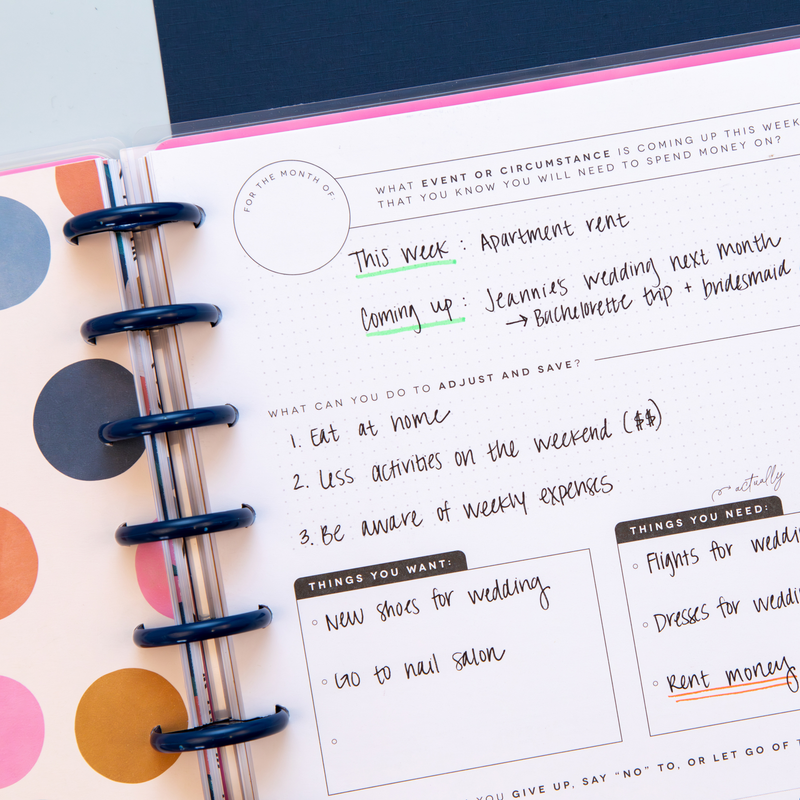 FOR THE MONTH OF
WHAT EVENT OR CIRCUMSTANCE IS COMING UP THIS WEEK
THAT YOU KNOW YOU WILL NEED TO SPEND MONEY ON?
This week : Apartment rent
Coming up : Jeannie's wedding next month
→ Bachelorette trip + bridesmaid
WHAT CAN YOU DO TO ADJUST AND SAVE?
1. Eat at home
2. Less activities on the weekend ($$)
3. Be aware of weekly expenses
THINGS YOU WANT:
New shoes for wedding
Go to nail salon
actually
THINGS YOU NEED:
Flights for
Dresses for
Rent money
YOU GIVE UP, SAY "NO" TO, OR LET GO OF